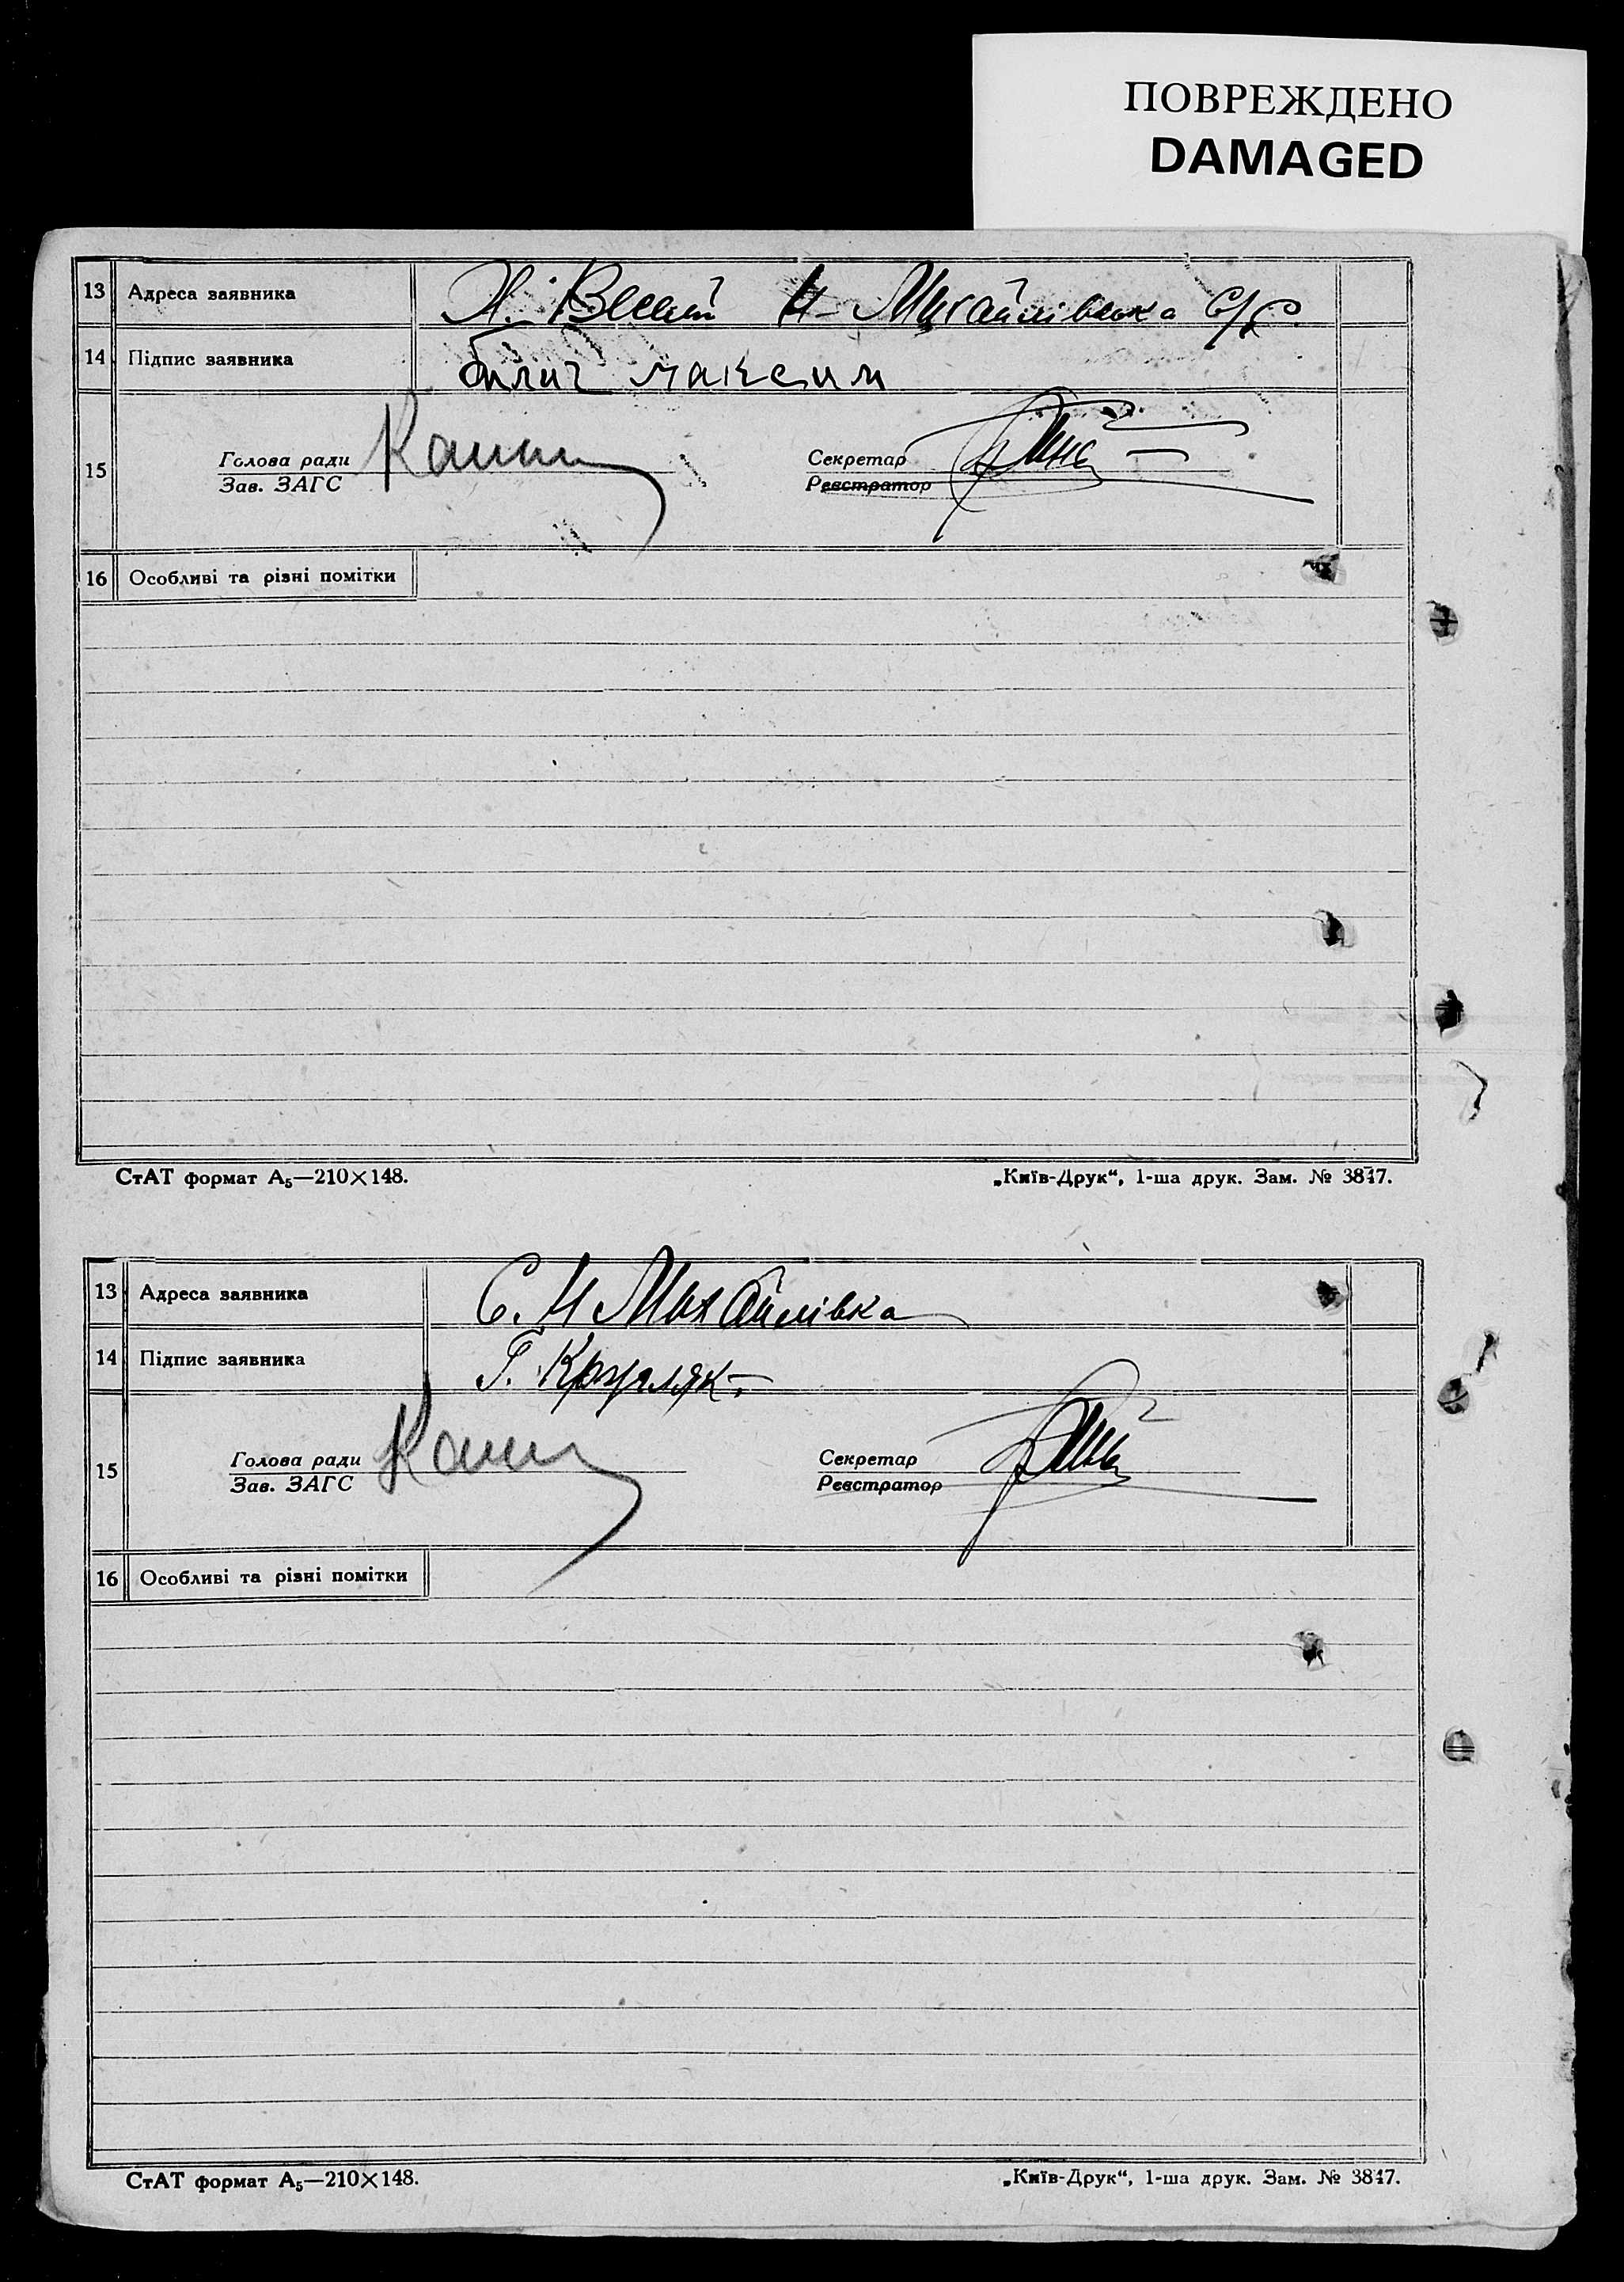 ПОВРЕЖДЕНО
DAMAGED
13 Адреса заявника Х. Веселий Н-Михайлівська С/р.
14 Підпис заявника білич максим
15 Голова ради Секретар
Зав. ЗАГС Реєстратор
16 Особливі та різні помітки
СтАТ формат А5—210×148. „Київ-Друк“, 1-ша друк. Зам. № 3847.
13 Адреса заявника С. Н Михайлівка
14 Підпис заявника Г. Кругляк
15 Голова ради Секретар
Зав. ЗАГС Реєстратор
16 Особливі та різні помітки
СтАТ формат А5—210×148. „Київ-Друк“, 1-ша друк. Зам. № 3847.